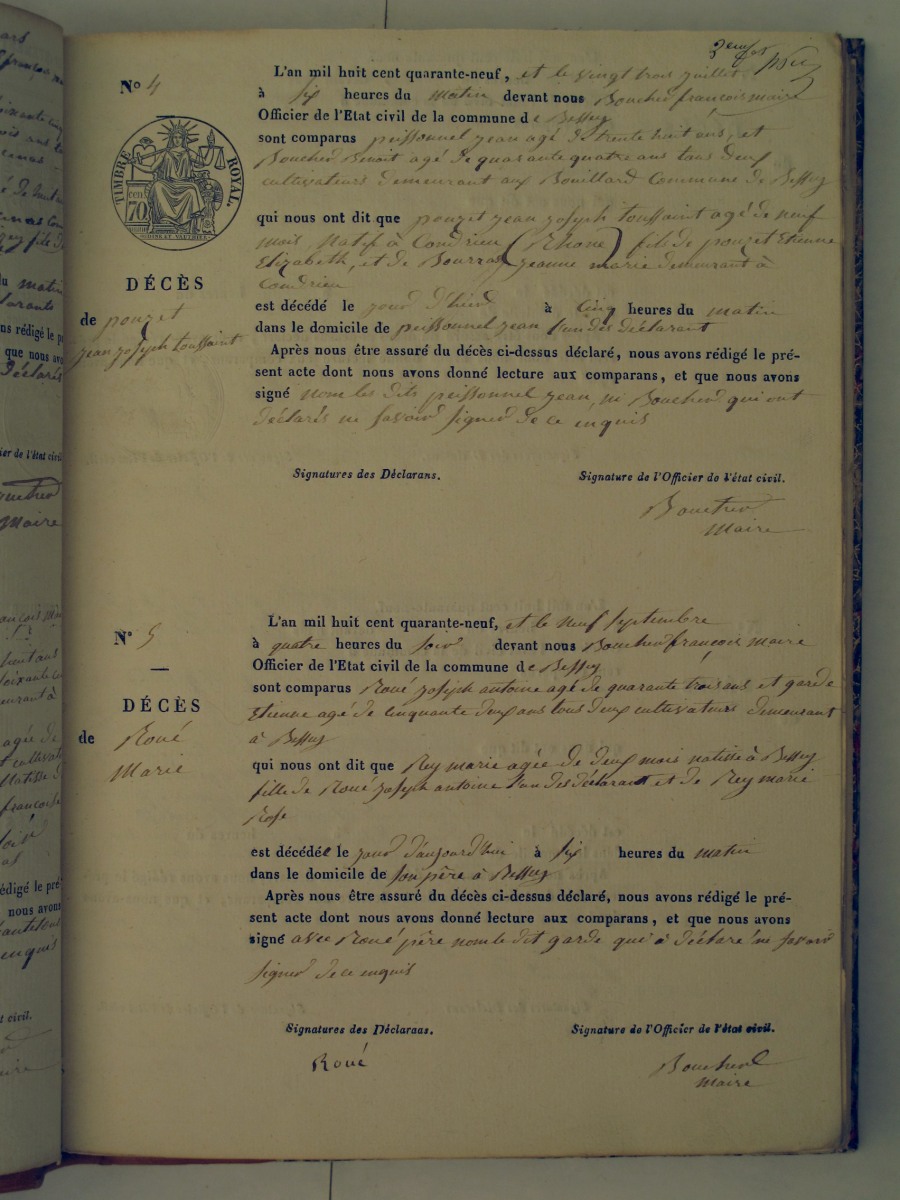 2em
No 4
TIMBRE ROYAL.
cen 70
DÉCÈS
de pouzet
jean joseph toussaint
L'an mil huit cent quarante-neuf, et le vingt trois juillet
à six heures du matin devant nous Boucher françois maire
Officier de l'Etat civil de la commune de Bessey
sont comparus peissonnel jean agé de trente huit ans, et
Boucher Benoit agé de quarante quatre ans tous deux
cultivateurs demeurant aux Bouillard Commune de Bessey
qui nous ont dit que pouzet jean joseph toussaint agé de neuf
mois, Natif à Condrieu (Rhone) fils de pouzet Etienne
Elizabeth, et de Bourras jeanne marie demeurant à
Condrieu
est décédé le jour d'hier à cinq heures du matin
dans le domicile de peissonnel jean l'un des déclarant
Après nous être assuré du décès ci-dessus déclaré, nous avons rédigé le pré-
sent acte dont nous avons donné lecture aux comparans, et que nous avons
signé nom les dits peissonnel jean, ni Boucher qui ont
déclarés ne savoir signer de ce enquis
Signatures des Déclarans.
Signature de l'Officier de l'état civil.
Boucher
maire
N° 5
DÉCÈS
de Roué
Marie
L'an mil huit cent quarante-neuf, et le neuf septembre
à quatre heures du soir devant nous Boucher françois maire
Officier de l'Etat civil de la commune de Bessey
sont comparus Roué joseph antoine agé de quarante trois ans et garde
Etienne agé de cinquante deux ans tous deux cultivateurs demeurant
à Bessey
qui nous ont dit que Rey marie agée de deux mois natisse à Bessey
fille de Roué joseph antoine l'un des déclarant et de Rey marie
Rose
est décédée le jour d'aujourd'hui à six heures du matin
dans le domicile de son père à Bessey
Après nous être assuré du décès ci-dessus déclaré, nous avons rédigé le pré-
sent acte dont nous avons donné lecture aux comparans, et que nous avons
signé avec Roué père nom le dit garde qui à déclaré ne savoir
signer de ce enquis
Signatures des Déclarans.
Signature de l'Officier de l'état civil.
Roué
Boucher
maire